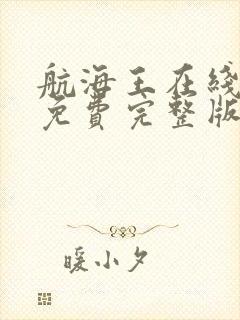 航海王在线
免费完整版
暖小夕